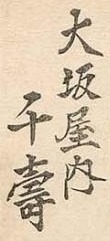 大坂屋内
千壽